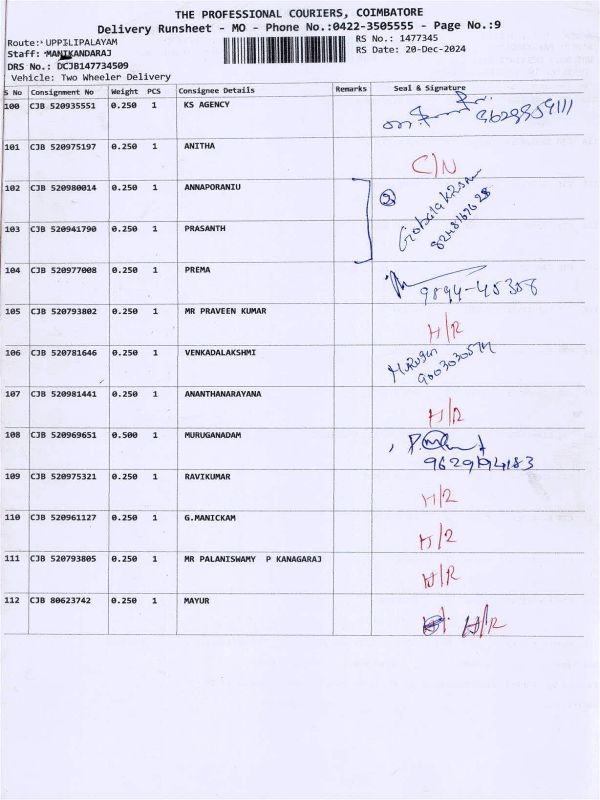 THE PROFESSIONAL COURIERS, COIMBATORE
Delivery Runsheet - MO - Phone No.:0422-3505555 - Page No.:9
Route: UPPILIPALAYAM
RS No.: 1477345
Staff: MANIKANDARAJ
RS Date: 20-Dec-2024
DRS No.: DCJB147734509
Vehicle: Two Wheeler Delivery
S No Consignment No Weight PCS Consignee Details Remarks Seal & Signature
100 CJB 520935551 0.250 1 KS AGENCY
101 CJB 520975197 0.250 1 ANITHA C/N
102 CJB 520980014 0.250 1 ANNAPORANIU 2
103 CJB 520941790 0.250 1 PRASANTH
104 CJB 520977008 0.250 1 PREMA 9894-45308
105 CJB 520793802 0.250 1 MR PRAVEEN KUMAR H/R
106 CJB 520781646 0.250 1 VENKADALAKSHMI Murugan
107 CJB 520981441 0.250 1 ANANTHANARAYANA H/R
108 CJB 520969651 0.500 1 MURUGANADAM
109 CJB 520975321 0.250 1 RAVIKUMAR H/R
110 CJB 520961127 0.250 1 G.MANICKAM H/R
111 CJB 520793805 0.250 1 MR PALANISWAMY P KANAGARAJ H/R
112 CJB 80623742 0.250 1 MAYUR H/R